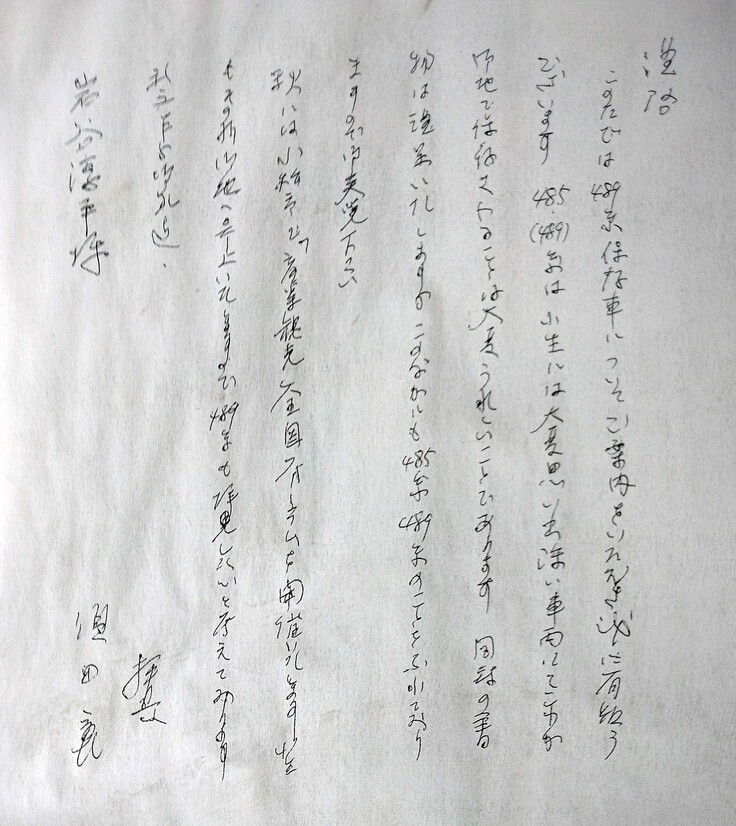 謹啓
このたびは489系保存車についてご案内をいただき誠に有難う
ございます 485(489)系は小生には大変思い出深い車両にて
御地で保存されることは大変うれしいことであります 同封の書
物は謹呈いたしますが このなかにも485系489系のことをふれており
ますので御笑覧下さい
秋には小松市で「産業観光全国フォーラムを開催しますが
もその折御地へ参上いたしますので489系も拝見したいと考えております
まずは御礼迄.
敬具
須田寛
岩谷淳平様